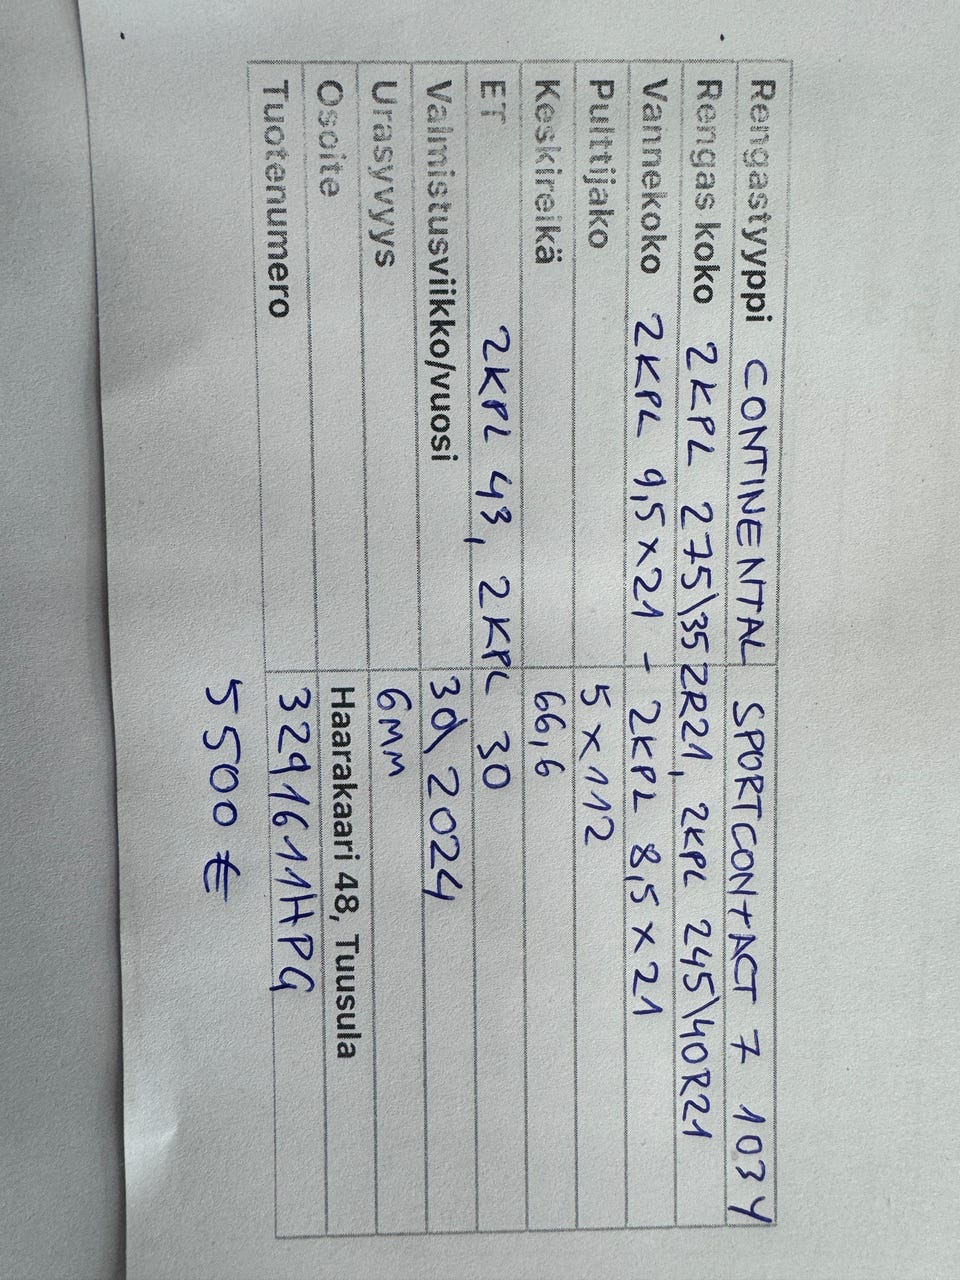 Rengastyyppi CONTINENTAL SPORTCONTACT 7 103Y
Rengas koko 2KPL 275\35ZR21, 2KPL 245\40R21
Vannekoko 2KPL 9,5x21 - 2KPL 8,5x21
Pulttijako 5x112
Keskireikä 66,6
ET 2KPL 43, 2KPL 30
Valmistusviikko/vuosi 30\2024
Urasyvyys 6MM
Osoite Haarakaari 48, Tuusula
Tuotenumero 3291611HPG
5500 €